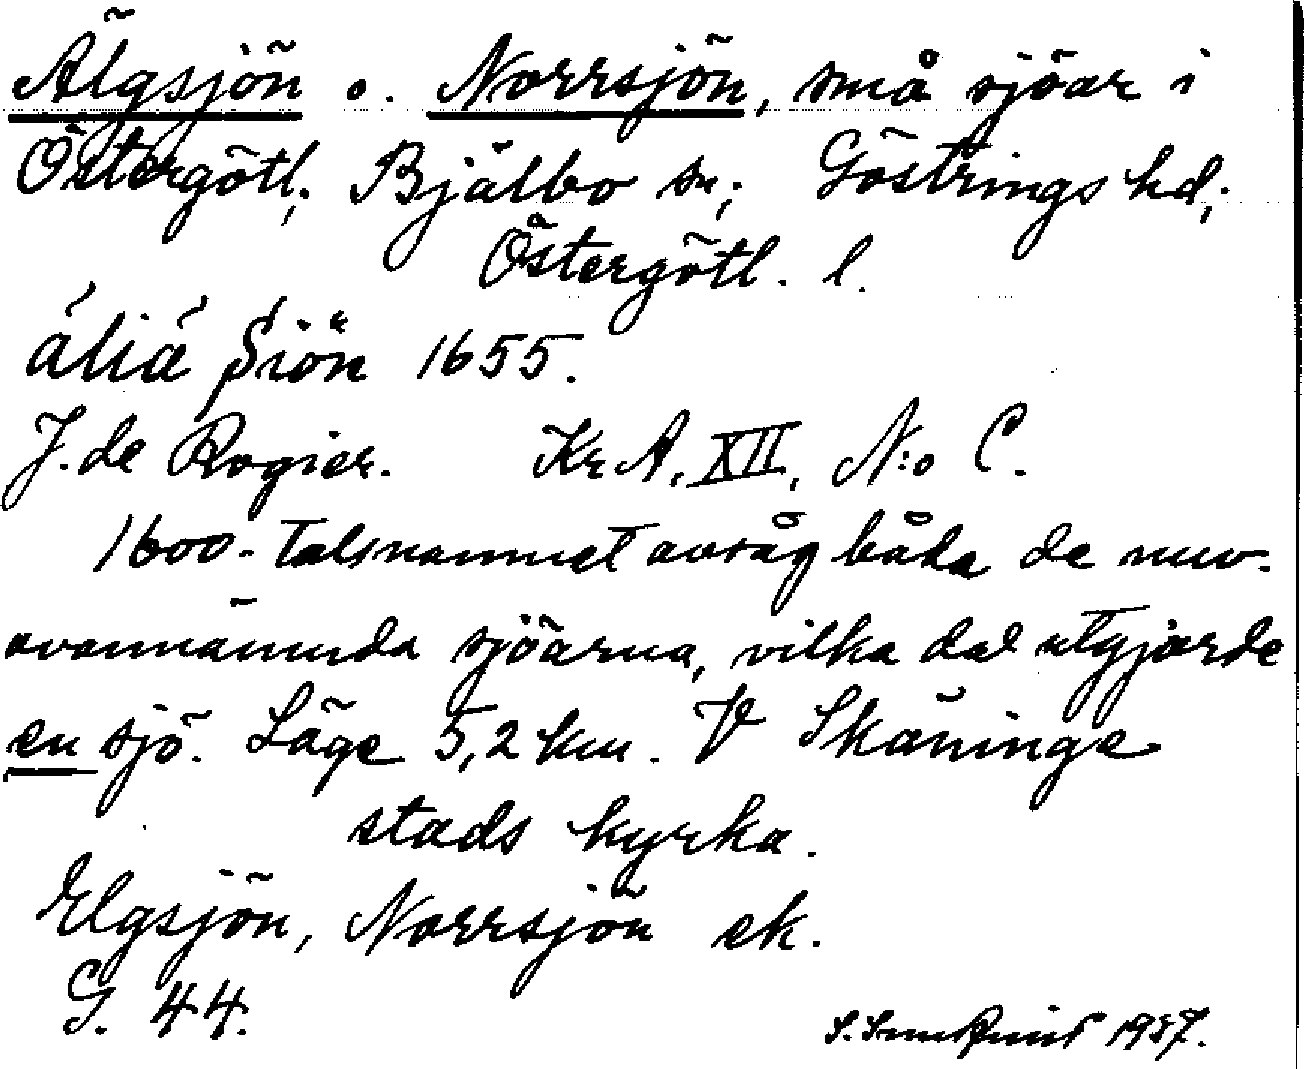 Älgsjön o. Norrsjön, små sjöar i
Östergötl; Bjälbo sn; Göstrings hd;
Östergötl. l.
áliá siön 1655.
J. de Rogier. Kr A, XII, N:o C.
1600-talsnamnet avsåg båda de nuv.
ovannämnda sjöarna, vilka då utgjorde
en sjö. Läge 5,2 km. V Skäninge
stads kyrka.
Elgsjön, Norrsjön ek.
G. 44.
1937.